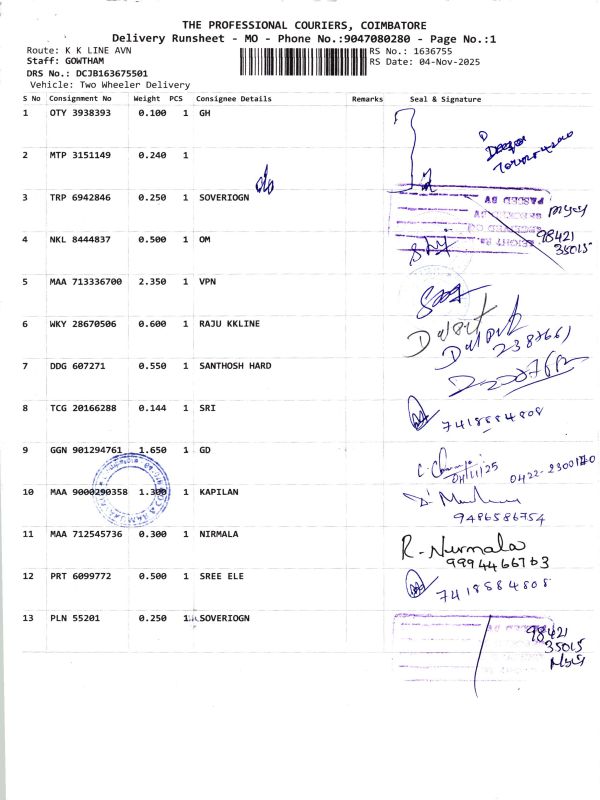 THE PROFESSIONAL COURIERS, COIMBATORE
Delivery Runsheet - MO - Phone No.:9047080280 - Page No.:1
Route: K K LINE AVN
RS No.: 1636755
Staff: GOWTHAM
RS Date: 04-Nov-2025
DRS No.: DCJB163675501
Vehicle: Two Wheeler Delivery
S No Consignment No Weight PCS Consignee Details Remarks Seal & Signature
1 OTY 3938393 0.100 1 GH
2 MTP 3151149 0.240 1
3 TRP 6942846 0.250 1 SOVERIOGN
98421
35015
4 NKL 8444837 0.500 1 OM
5 MAA 713336700 2.350 1 VPN
6 WKY 28670506 0.600 1 RAJU KKLINE
7 DDG 607271 0.550 1 SANTHOSH HARD
8 TCG 20166288 0.144 1 SRI
7418884808
9 GGN 901294761 1.650 1 GD
04/11/25 0422-2300170
10 MAA 9000290358 1.300 1 KAPILAN
9486586754
11 MAA 712545736 0.300 1 NIRMALA
R. Nirmala
9994466763
12 PRT 6099772 0.500 1 SREE ELE
7418884808
13 PLN 55201 0.250 1 SOVERIOGN
98421
35015